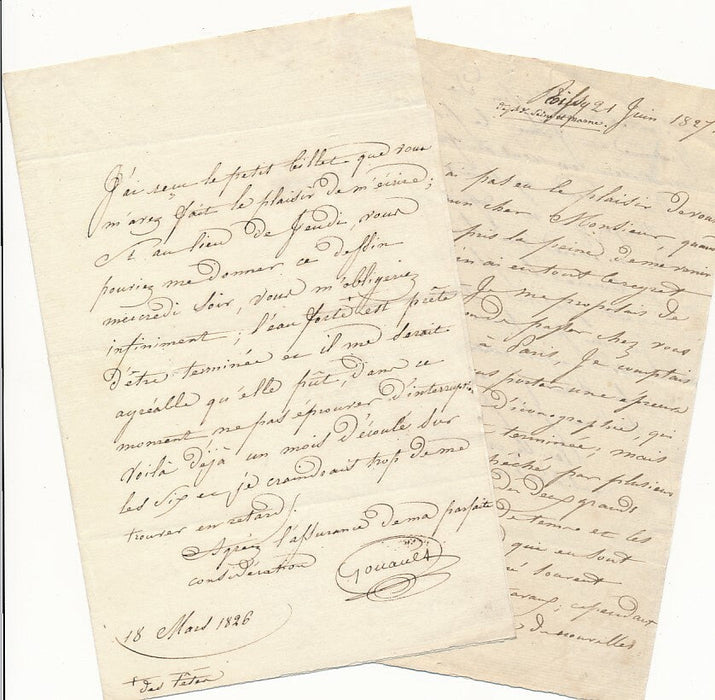 J'ai reçu le petit billet que vous
m'avez fait le plaisir de m'écrire;
Si au lieu de Jeudi, vous
pouviez me donner ce dessin
mercredi soir, vous m'obligeriez
infiniment; l'eau forte + est prête
d'être terminée et il me serait
agréable qu'elle pût, dans ce
moment ne pas éprouver d'interruption
Voilà déjà un mois d'écoulé sur
les six et je craindrais trop de me
trouver en retard!
Agréez l'assurance de ma parfaite
considération
Gouault
18 Mars 1826
+ des Têtes
21 Juin 1827
dépt. de Seine et marne.
pas eu le plaisir de vous
mon cher Monsieur, quand
pris la peine de me venir
en ai eu tout le regret
Je me proposais de
passer chez vous
à Paris, Je comptais
vous porter une épreuve
d'iconographie, qui
terminée; mais
empêché par plusieurs
des deux grands
de tems et les
que en sont
souvent
cependant
de nouvelles